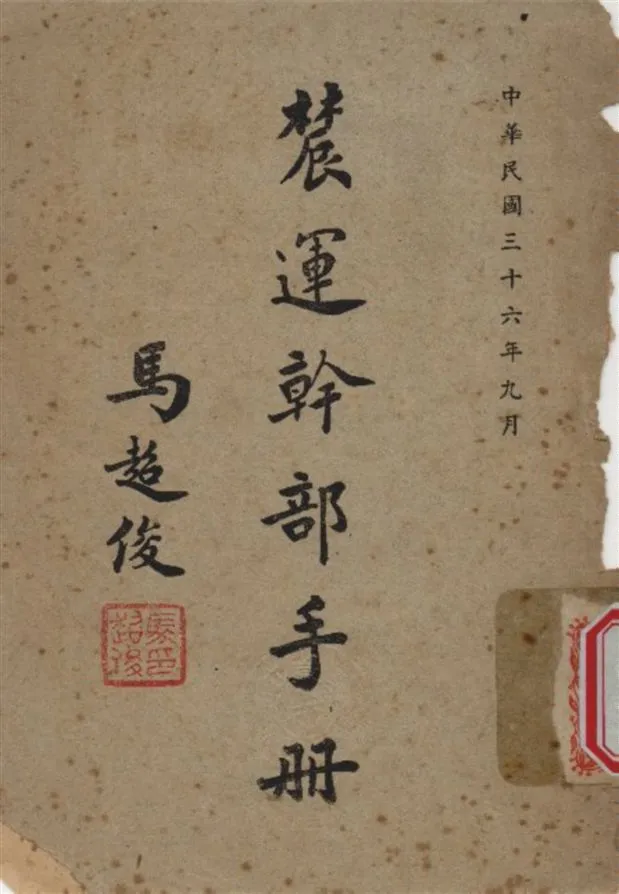 中華民國三十六年九月
辳運幹部手冊
馬超俊
馬印
超俊